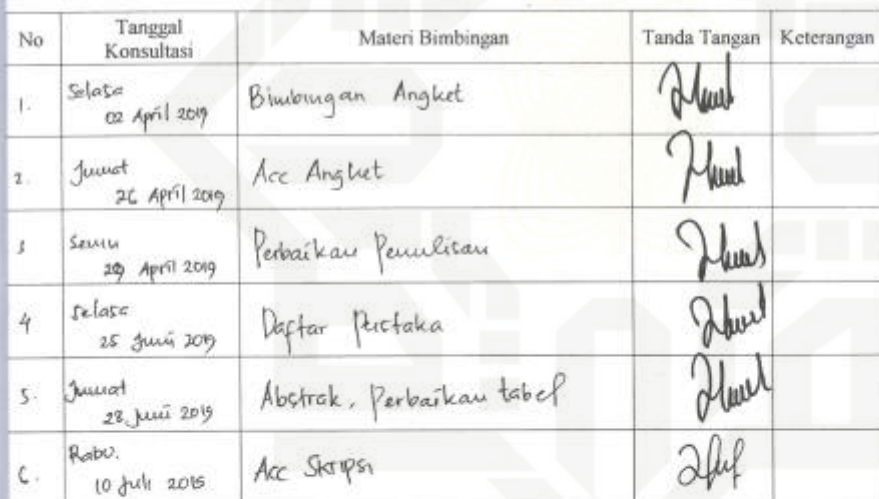 No Tanggal Konsultasi Materi Bimbingan Tanda Tangan Keterangan
1. Selasa 02 April 2019 Bimbingan Angket
2. Jumat 26 April 2019 Acc Angket
3 Senin 29 April 2019 Perbaikan Penulisan
4 Selasa 25 Juni 2019 Daftar Pustaka
5. Jumat 28 Juni 2019 Abstrak, Perbaikan tabel
6. Rabu. 10 Juli 2015 Acc Skripsi